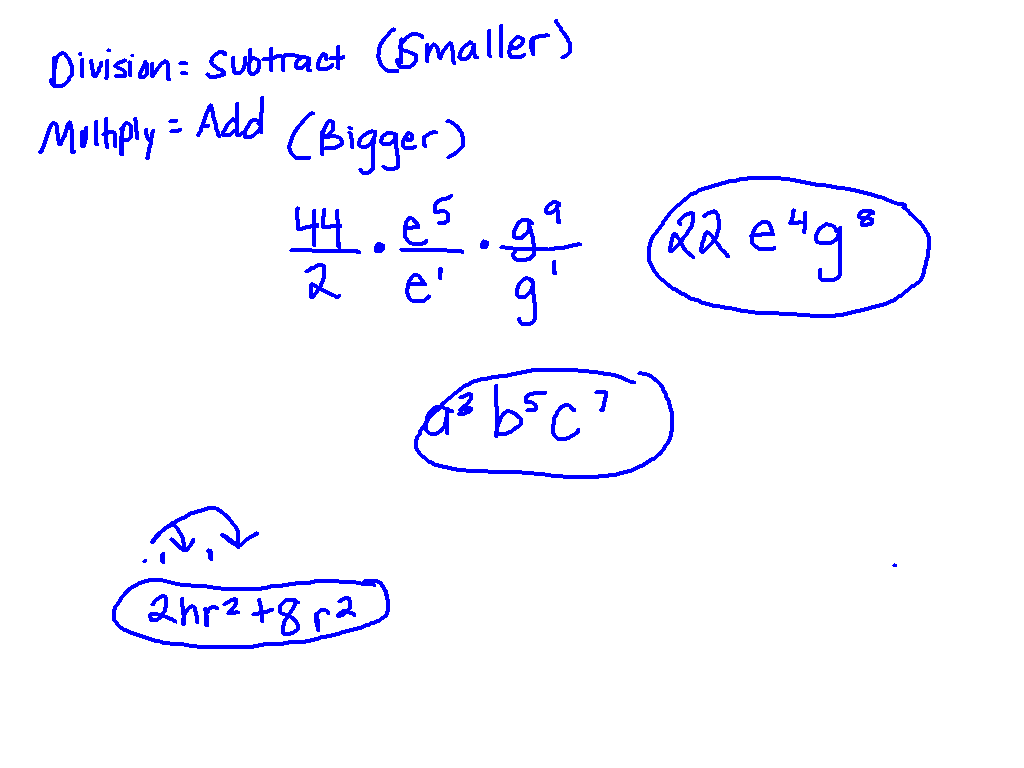 Division = Subtract (Smaller)
Multiply = Add (Bigger)
44/2 · e^5/e^1 · g^9/g^1 22 e^4 g^8
b^5 c^7
2hr^2 + 8r^2